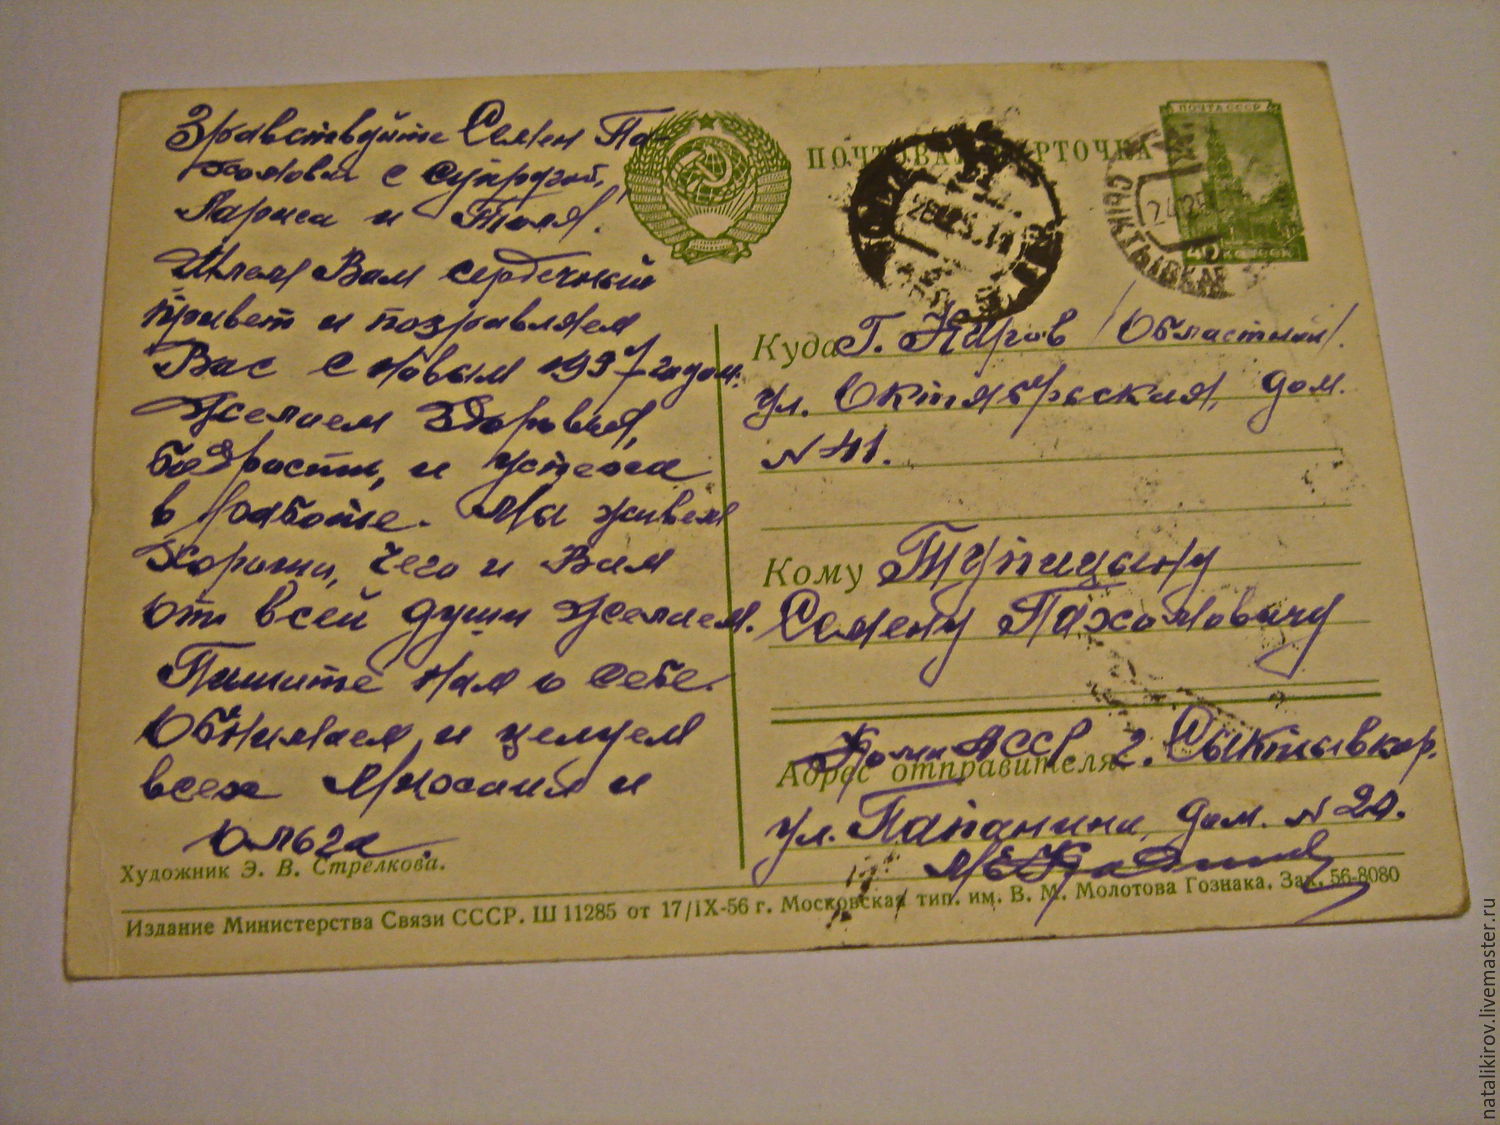 Здравствуйте Семен Па-
хомович с супругой,
Лариса и Толя.
Шлем Вам сердечный
привет и поздравляем
Вас с новым 1957 годом.
Желаем здоровья,
бодрости, и успеха
в работе. Мы живем
хорошо, чего и Вам
от всей души желаем.
Пишите нам о себе.
Обнимаем и целуем
всех Михаил и
Ольга.
Художник Э. В. Стрелкова.
ПОЧТОВАЯ КАРТОЧКА
ПОЧТА СССР
40 КОПЕЕК
СЫКТЫВКАР
Куда Г. Киров Областной.
ул. Октябрьская, дом.
N 41.
Кому Тупицыну
Семену Пахомовичу
Коми АССР г. Сыктывкар.
Адрес отправителя:
ул. Папанина, дом. N 20.
Издание Министерства Связи СССР. Ш 11285 от 17/IX-56 г. Московская тип. им. В. М. Молотова Гознака. Зак. 56-8080
natalikirov.livemaster.ru